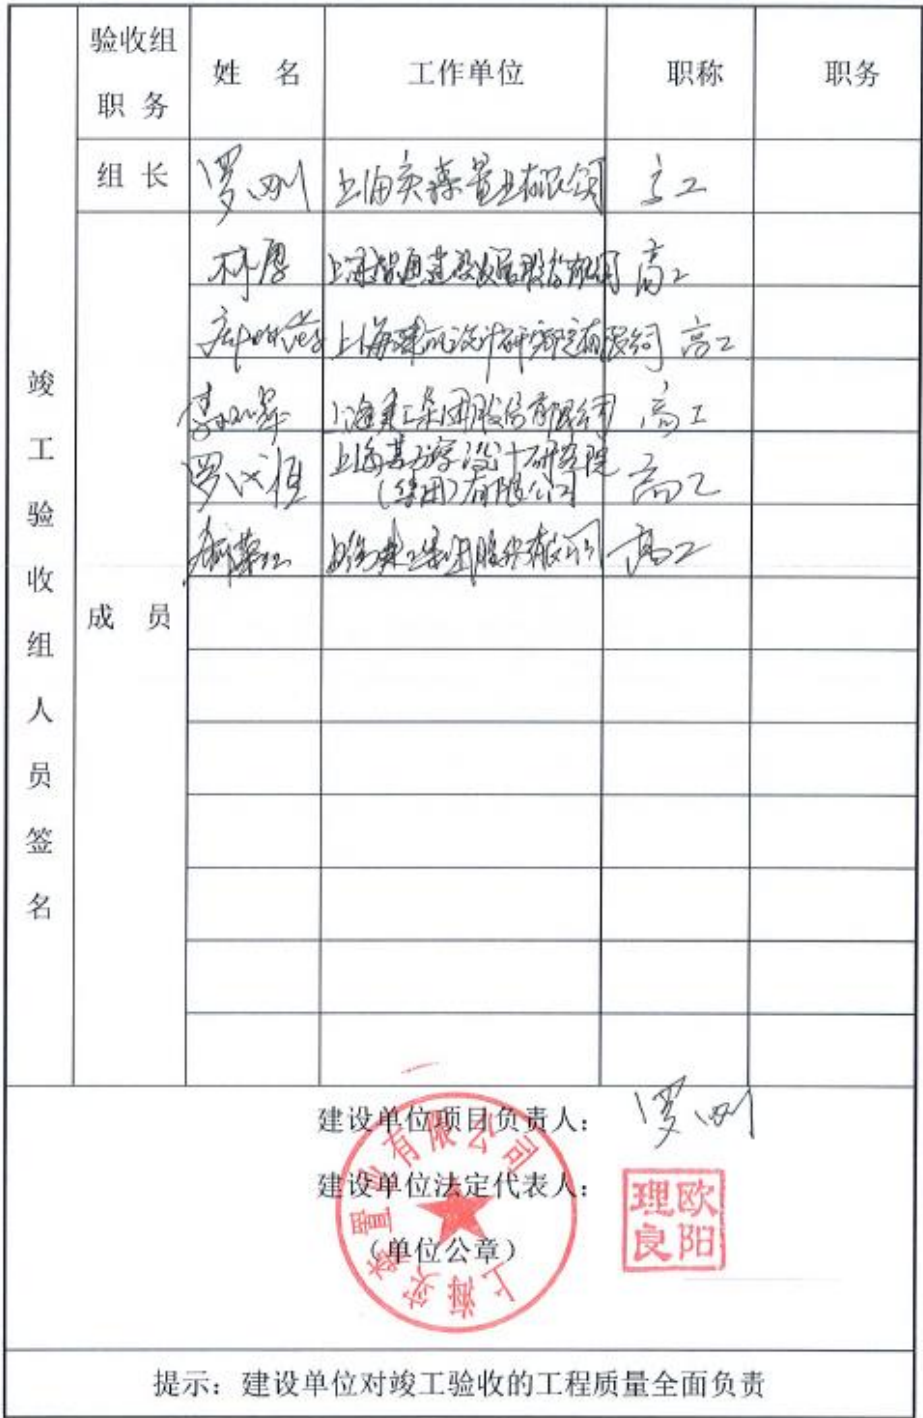 验收组
职 务
姓 名
工作单位
职称
职务
组 长
罗刚
上海实森置业有限公司
高工
林厚
上海智通建设发展股份有限公司
高工
上海建筑设计研究院有限公司
高工
上海建工集团股份有限公司
高工
上海勘察设计研究院
(集团)有限公司
高工
上海建工集团股份有限公司
高工
成 员
竣工验收组人员签名
建设单位项目负责人:
罗刚
建设单位法定代表人:
欧阳
理良
(单位公章)
上海实森置业有限公司
提示:建设单位对竣工验收的工程质量全面负责